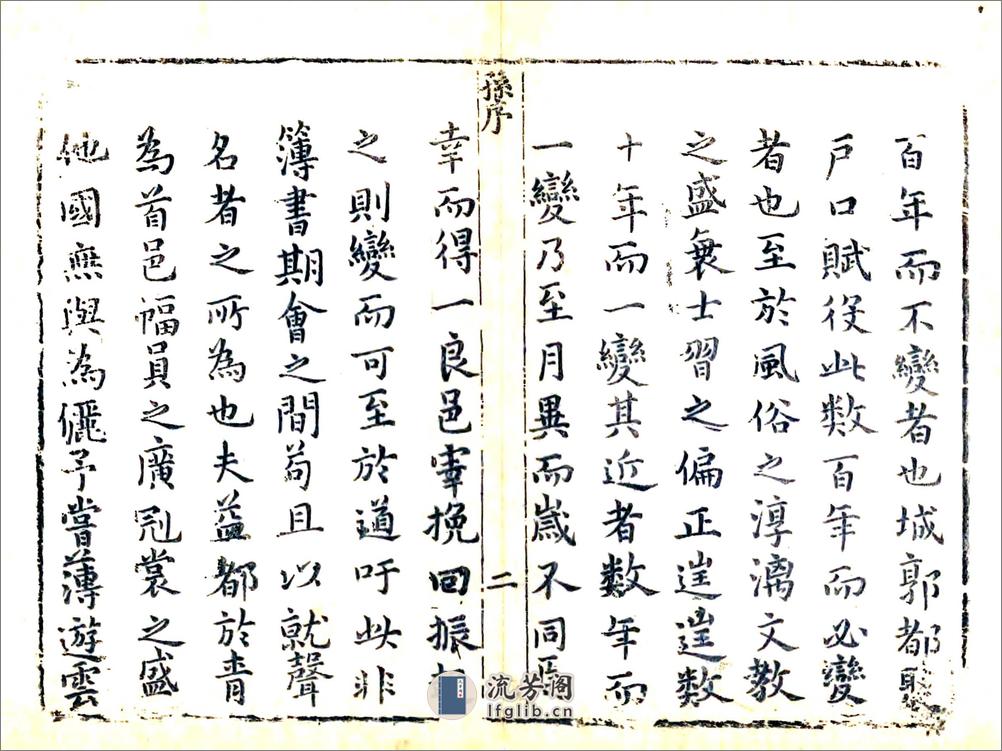 百年而不變者也城郭都
戶口賦役此數百年而必變
者也至於風俗之淳漓文教
之盛衰士習之偏正逞逞數
十年而一變其近者數年而
一變乃至月異而歲不同
孫序
二
幸而得一良邑宰挽回振
之則變而可至於道吁此非
簿書期會之間苟且以就聲
名者之所為也夫益都於青
為首邑幅員之廣冠裳之盛
他國無與為儷予嘗薄遊雲
流芳阁
lfglib.cn